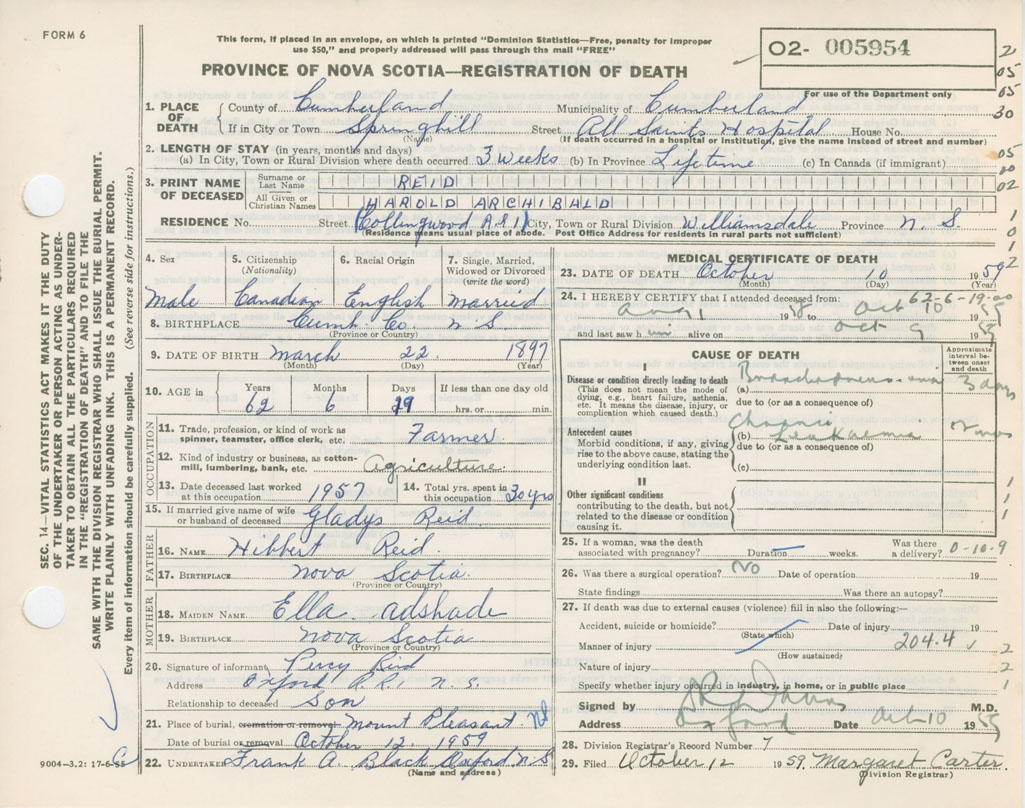 FORM 6
This form, if placed in an envelope, on which is printed "Dominion Statistics—Free, penalty for improper
use $50," and properly addressed will pass through the mail "FREE"
PROVINCE OF NOVA SCOTIA—REGISTRATION OF DEATH
O2- 005954
For use of the Department only
2
05
05
30
05
00
02
1
0
1
2
1. PLACE OF DEATH County of Cumberland Municipality of Cumberland
If in City or Town Springhill Street All Saints Hospital House No.
(Name) (If death occurred in a hospital or institution, give the name instead of street and number)
2. LENGTH OF STAY (in years, months and days)
(a) In City, Town or Rural Division where death occurred 3 weeks (b) In Province Lifetime (c) In Canada (if immigrant)
3. PRINT NAME OF DECEASED Surname or Last Name REID
All Given or Christian Names HAROLD ARCHIBALD
RESIDENCE No. Street Collingwood R.R.1 City, Town or Rural Division Williamsdale Province N. S.
(Residence means usual place of abode. Post Office Address for residents in rural parts not sufficient)
SEC. 14—VITAL STATISTICS ACT MAKES IT THE DUTY
OF THE UNDERTAKER OR PERSON ACTING AS UNDER-
TAKER TO OBTAIN ALL THE PARTICULARS REQUIRED
IN THE "REGISTRATION OF DEATH" AND TO FILE THE
SAME WITH THE DIVISION REGISTRAR WHO SHALL ISSUE THE BURIAL PERMIT.
WRITE PLAINLY WITH UNFADING INK. THIS IS A PERMANENT RECORD.
Every item of information should be carefully supplied. (See reverse side for instructions.)
4. Sex Male
5. Citizenship (Nationality) Canadian
6. Racial Origin English
7. Single, Married, Widowed or Divorced (write the word) married
8. BIRTHPLACE Cumb. Co. N S
(Province or Country)
9. DATE OF BIRTH March 22. 1897
(Month) (Day) (Year)
10. AGE in Years 62 Months 6 Days 19 If less than one day old hrs. or min.
OCCUPATION
11. Trade, profession, or kind of work as
spinner, teamster, office clerk, etc. Farmer
12. Kind of industry or business, as cotton-
mill, lumbering, bank, etc. Agriculture.
13. Date deceased last worked
at this occupation 1957
14. Total yrs. spent in
this occupation 30 yrs
15. If married give name of wife
or husband of deceased Gladys Reid
FATHER
16. NAME Hibbert Reid.
17. BIRTHPLACE Nova Scotia.
(Province or Country)
MOTHER
18. MAIDEN NAME Ella Adshade
19. BIRTHPLACE Nova Scotia
(Province or Country)
20. Signature of informant Percy Reid
Address Oxford R.R.1, N. S.
Relationship to deceased Son
21. Place of burial, cremation or removal Mount Pleasant NS
Date of burial or removal October 12, 1959
22. UNDERTAKER Frank A. Black Oxford N S
(Name and address)
9004-3.2: 17-6-55
MEDICAL CERTIFICATE OF DEATH
23. DATE OF DEATH October 10 1959
(Month) (Day) (Year)
62-6-19-00
24. I HEREBY CERTIFY that I attended deceased from:
Aug 1 1958 to Oct 10 1959
and last saw him alive on Oct 9 1959
CAUSE OF DEATH
Approximate interval between onset and death
I
Disease or condition directly leading to death
(This does not mean the mode of
dying, e.g., heart failure, asthenia,
etc. It means the disease, injury, or
complication which caused death.)
(a) 3 days
due to (or as a consequence of)
Antecedent causes
Morbid conditions, if any, giving
rise to the above cause, stating the
underlying condition last.
Chronic
(b) Leukaemia mos
due to (or as a consequence of)
(c)
II
Other significant conditions
contributing to the death, but not
related to the disease or condition
causing it.
1
1
1
25. If a woman, was the death
associated with pregnancy? Duration weeks. Was there
a delivery? 0-10-9
26. Was there a surgical operation? No Date of operation 19
State findings Was there an autopsy?
27. If death was due to external causes (violence) fill in also the following:—
Accident, suicide or homicide? Date of injury 19
(State which)
Manner of injury 204.4 2
(How sustained)
Nature of injury 2
Specify whether injury occurred in industry, in home, or in public place 1
Signed by M.D.
Address Oxford Date Oct 10 1959
28. Division Registrar's Record Number 7
29. Filed October 12 1959. Margaret Carter.
(Division Registrar)